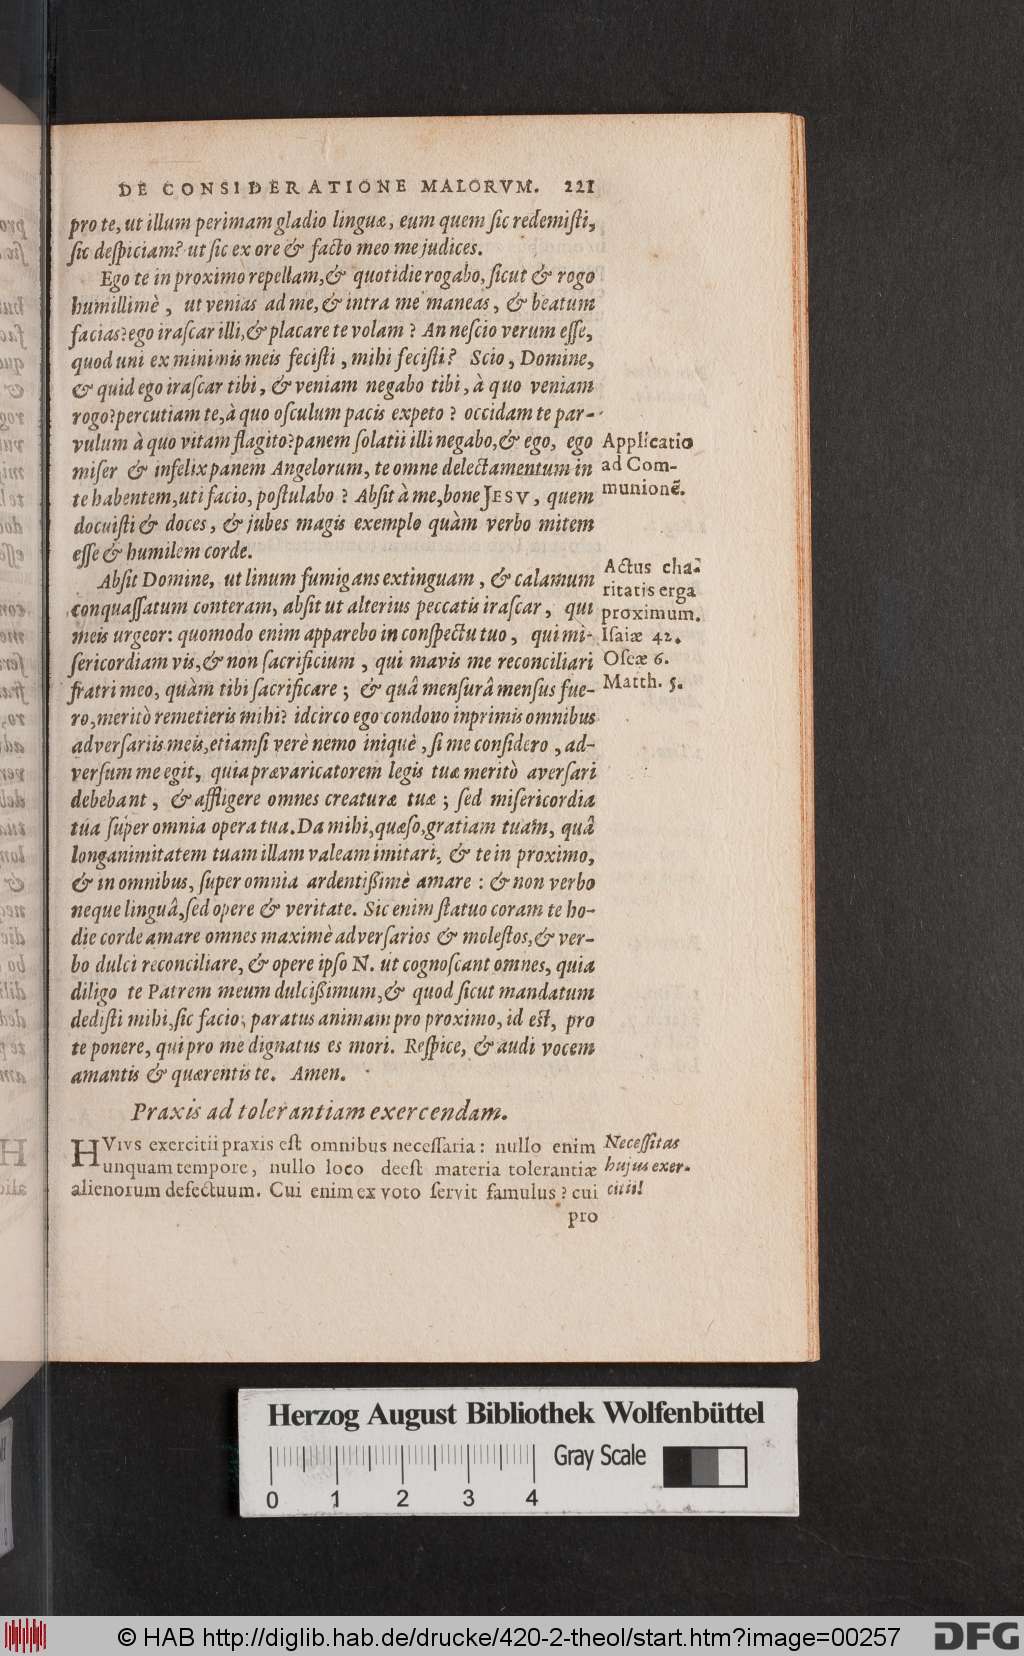 DE CONSIDERATIONE MALORVM. 221
pro te, ut illum perimam gladio linguæ, eum quem ſic redemiſti,
ſic deſpiciam? ut ſic ex ore & facto meo me judices.
Ego te in proximo repellam, & quotidie rogabo, ſicut & rogo
humillimè, ut venias ad me, & intra me maneas, & beatum
facias? ego iraſcar illi, & placare te volam? An neſcio verum eſſe,
quod uni ex minimis meis feciſti, mihi feciſti? Scio, Domine,
& quid ego iraſcar tibi, & veniam negabo tibi, à quo veniam
rogo? percutiam te, à quo oſculum pacis expeto? occidam te par-
vulum à quo vitam flagito? panem ſolatii illi negabo, & ego, ego
miſer & infelix panem Angelorum, te omne delectamentum in
te habentem, uti facio, poſtulabo? Abſit à me, bone JESV, quem
docuiſti & doces, & jubes magis exemplo quàm verbo mitem
eſſe & humilem corde.
Applicatio
ad Com-
munionē.
Abſit Domine, ut linum fumigans extinguam, & calamum
conquaſſatum conteram, abſit ut alterius peccatis iraſcar, qui
meis urgeor: quomodo enim apparebo in conſpectu tuo, qui mi-
ſericordiam vis, & non ſacrificium, qui mavis me reconciliari
fratri meo, quàm tibi ſacrificare; & quâ menſurâ menſus fue-
ro, meritò remetieris mihi? idcirco ego condono inprimis omnibus
adverſariis meis, etiamſi verè nemo iniquè, ſi me conſidero, ad-
verſum me egit, quia prævaricatorem legis tuæ meritò averſari
debebant, & affligere omnes creaturæ tuæ; ſed miſericordia
tua ſuper omnia opera tua. Da mihi, quæſo, gratiam tuam, quâ
longanimitatem tuam illam valeam imitari, & te in proximo,
& in omnibus, ſuper omnia ardentiſſimè amare: & non verbo
neque linguâ, ſed opere & veritate. Sic enim ſtatuo coram te ho-
die corde amare omnes maximè adverſarios & moleſtos, & ver-
bo dulci reconciliare, & opere ipſo N. ut cognoſcant omnes, quia
diligo te Patrem meum dulciſſimum, & quod ſicut mandatum
dediſti mihi, ſic facio, paratus animam pro proximo, id eſt, pro
te ponere, qui pro me dignatus es mori. Reſpice, & audi vocem
amantis & quærentis te. Amen.
Actus cha-
ritatis erga
proximum.
Iſaiæ 42.
Oſeæ 6.
Matth. 5.
Praxis ad tolerantiam exercendam.
HVIVS exercitii praxis eſt omnibus neceſſaria: nullo enim
unquam tempore, nullo loco deeſt materia tolerantiæ
alienorum defectuum. Cui enim ex voto ſervit famulus? cui
pro
Neceſſitas
hujus exer-
citii!
Herzog August Bibliothek Wolfenbüttel
Gray Scale
0 1 2 3 4
© HAB http://diglib.hab.de/drucke/420-2-theol/start.htm?image=00257
DFG